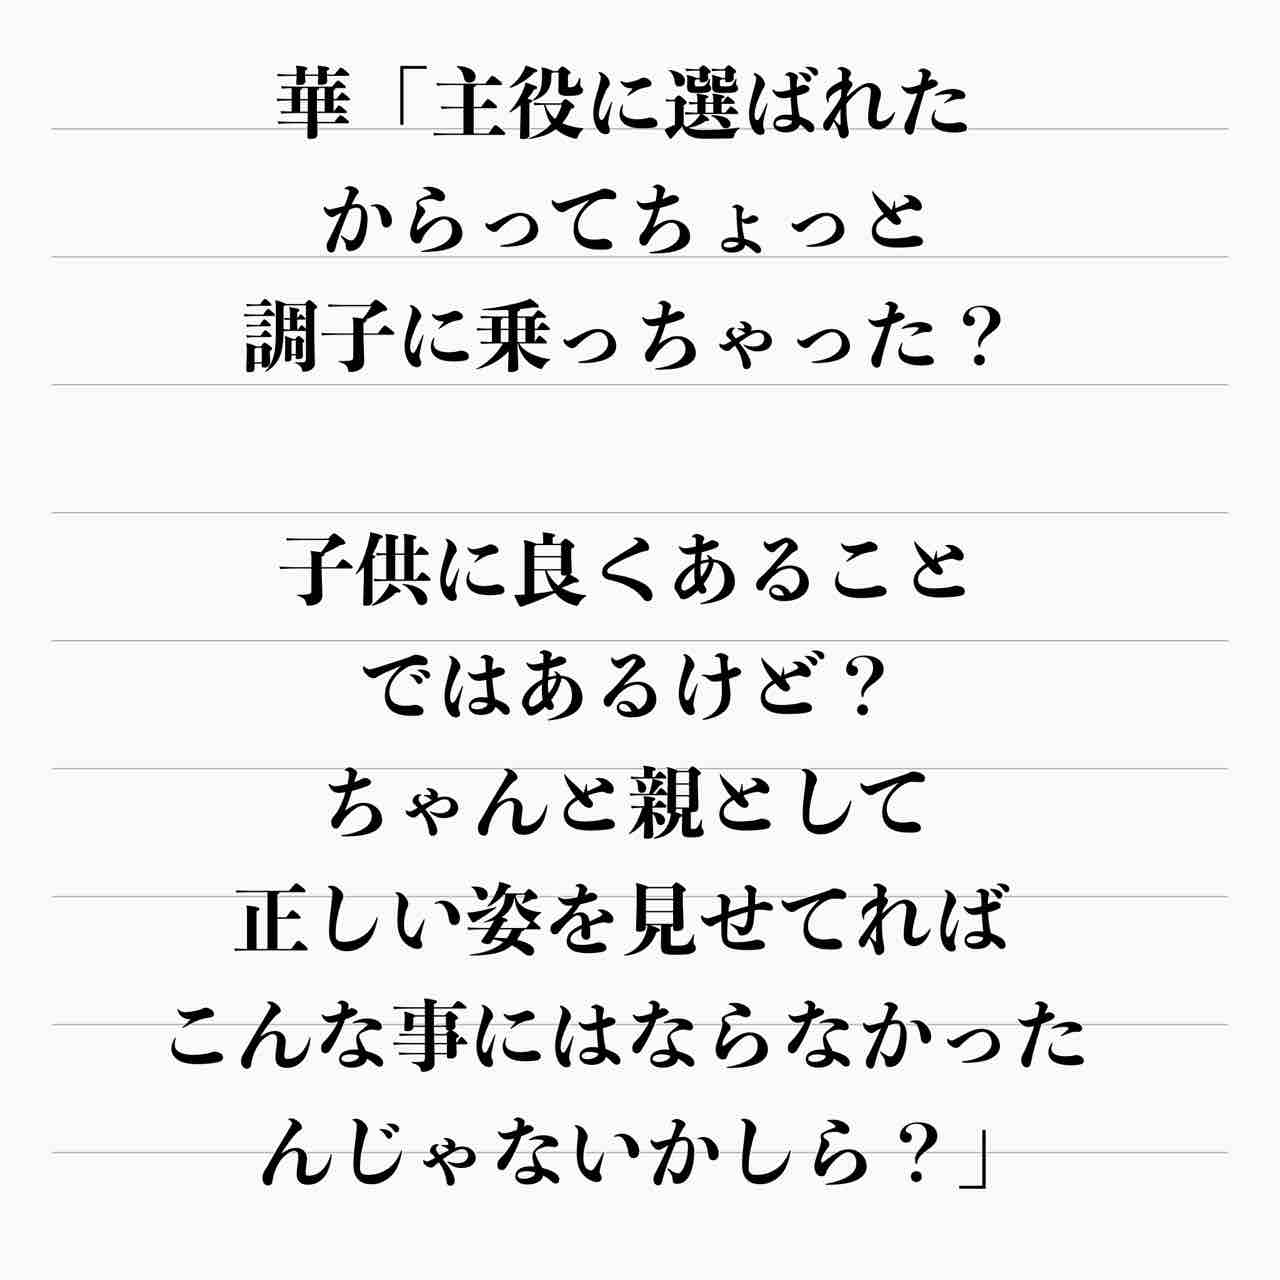 華「主役に選ばれた
からってちょっと
調子に乗っちゃった？
子供に良くあること
ではあるけど？
ちゃんと親として
正しい姿を見せてれば
こんな事にはならなかった
んじゃないかしら？」